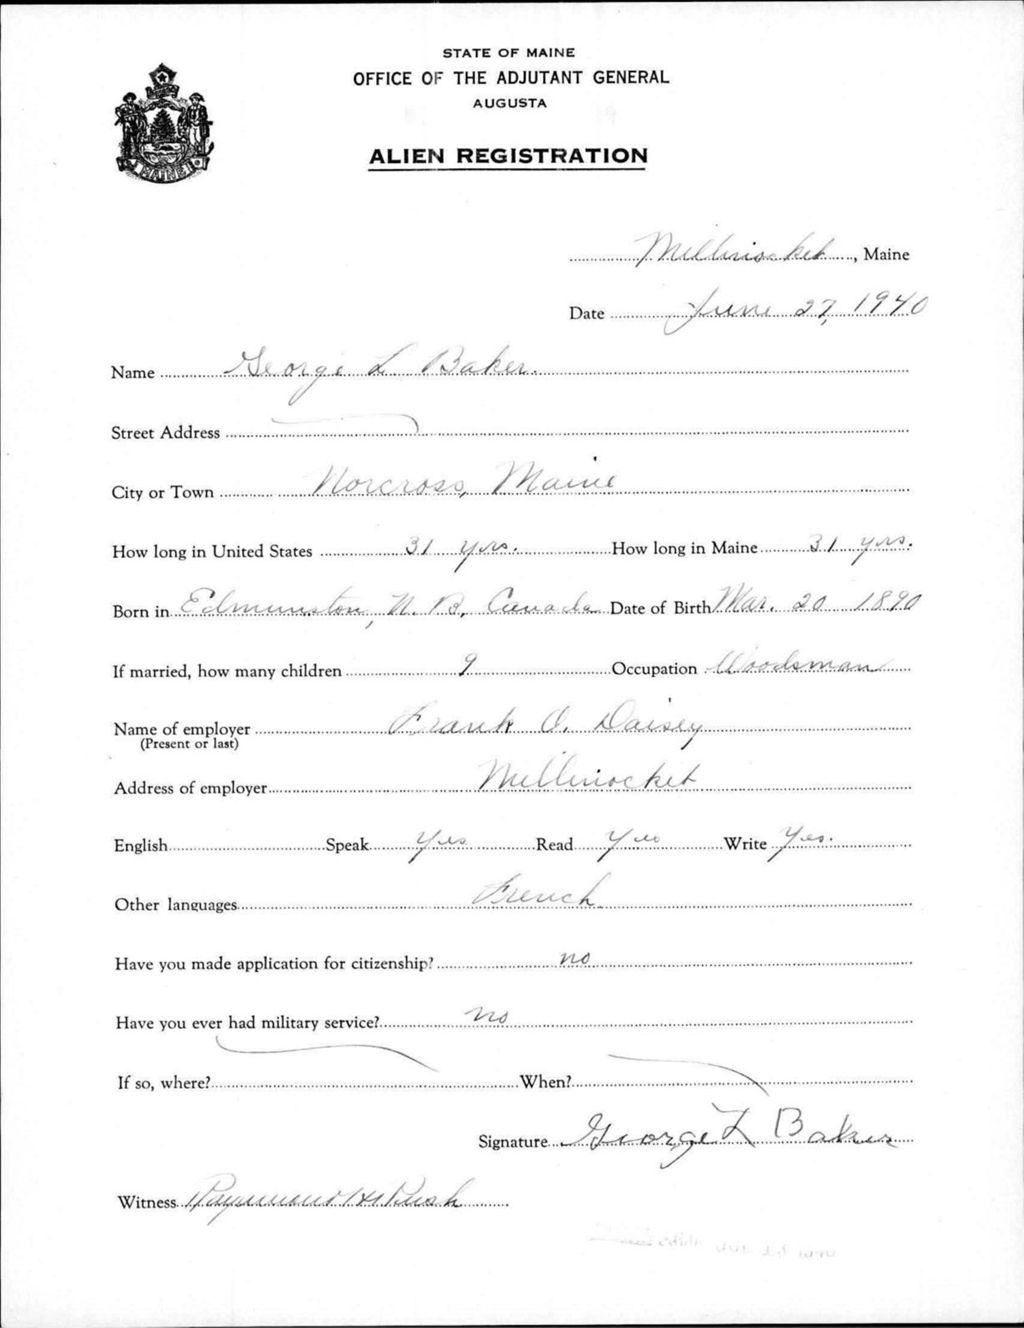 STATE OF MAINE
OFFICE OF THE ADJUTANT GENERAL
AUGUSTA
ALIEN REGISTRATION
MAINE
Millinocket, Maine
Date June 27, 1940
Name George L Baker.
Street Address
City or Town Norcross, Maine
How long in United States 31 yrs. How long in Maine 31 yrs.
Born in Edmunston, N. B. Canada Date of Birth Mar. 20 1890
If married, how many children 9 Occupation Woodsman
Name of employer Frank O. Daisey
(Present or last)
Address of employer Millinocket
English Speak Yes Read Yes Write Yes.
Other languages French
Have you made application for citizenship? no
Have you ever had military service? no
If so, where? When?
Signature George L Baker
Witness Raymond H Rush